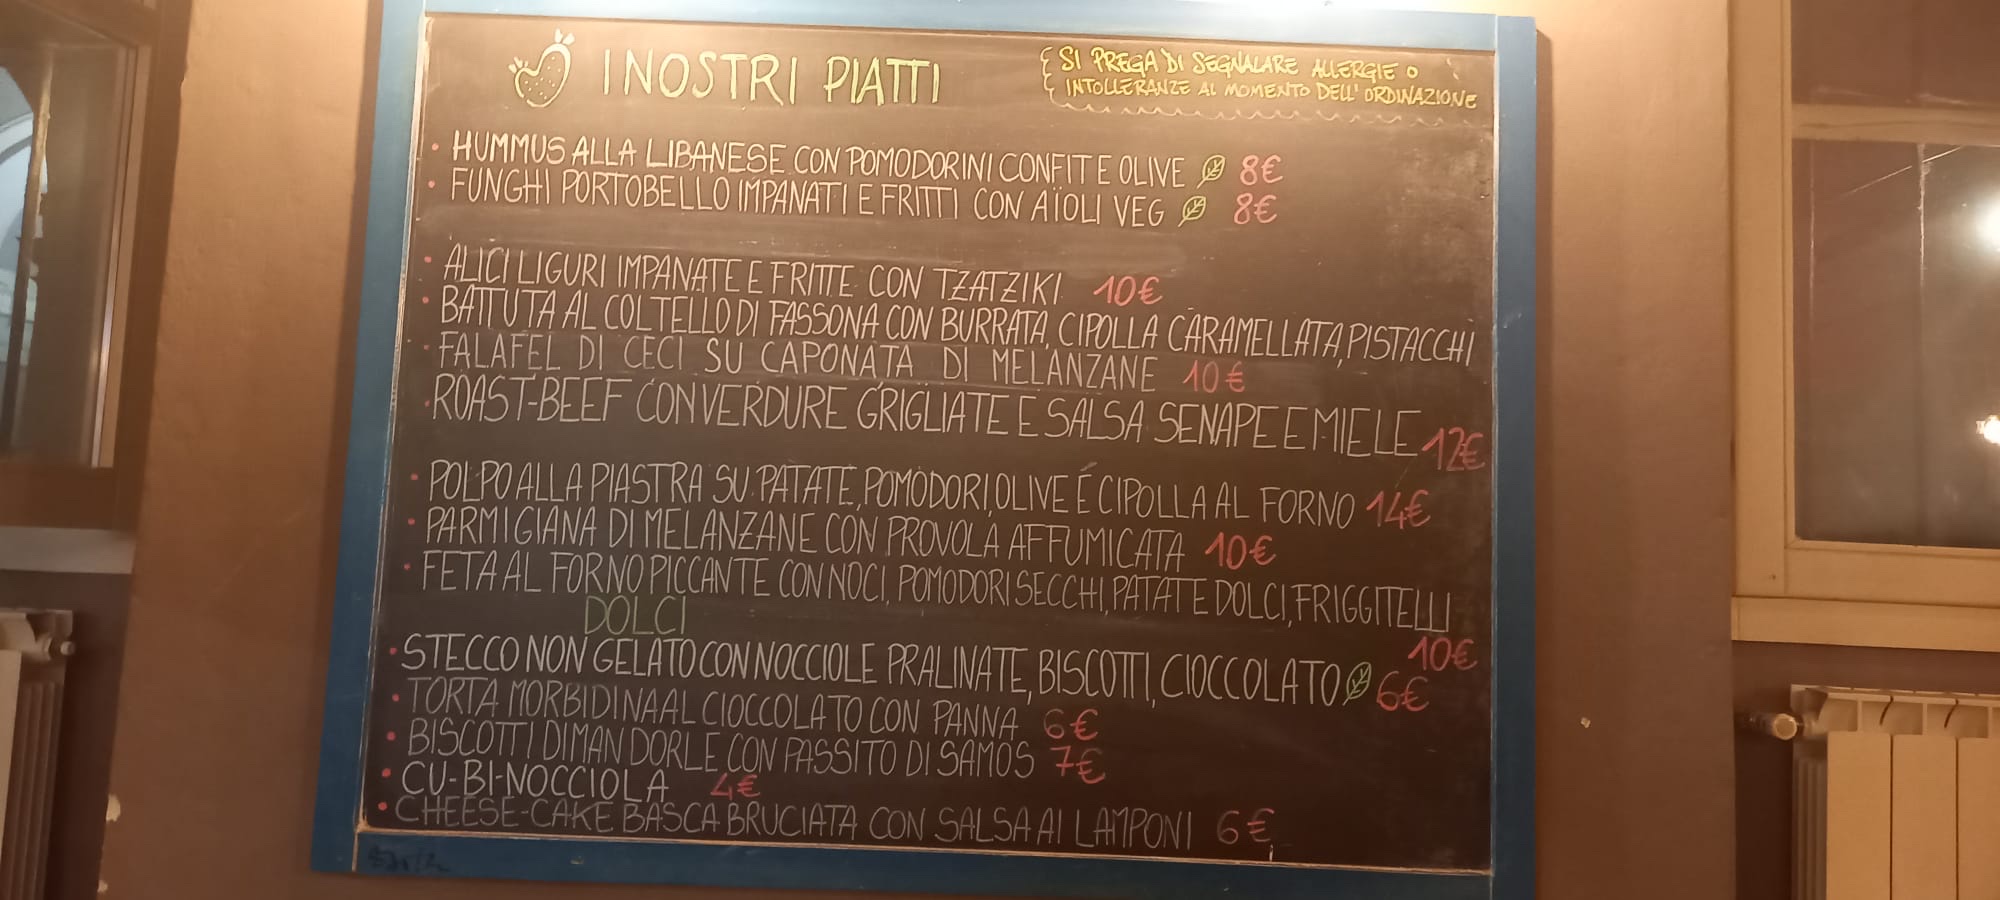 I NOSTRI PIATTI
SI PREGA DI SEGNALARE ALLERGIE O
INTOLLERANZE AL MOMENTO DELL'ORDINAZIONE
• HUMMUS ALLA LIBANESE CON POMODORINI CONFIT E OLIVE 8€
• FUNGHI PORTOBELLO IMPANATI E FRITTI CON AÏOLI VEG 8€
• ALICI LIGURI IMPANATE E FRITTE CON TZATZIKI 10€
• BATTUTA AL COLTELLO DI FASSONA CON BURRATA, CIPOLLA CARAMELLATA, PISTACCHI
• FALAFEL DI CECI SU CAPONATA DI MELANZANE 10€
• ROAST-BEEF CON VERDURE GRIGLIATE E SALSA SENAPE E MIELE 12€
• POLPO ALLA PIASTRA SU PATATE, POMODORI, OLIVE E CIPOLLA AL FORNO 14€
• PARMIGIANA DI MELANZANE CON PROVOLA AFFUMICATA 10€
• FETA AL FORNO PICCANTE CON NOCI, POMODORI SECCHI, PATATE DOLCI, FRIGGITELLI
10€
DOLCI
• STECCO NON GELATO CON NOCCIOLE PRALINATE, BISCOTTI, CIOCCOLATO 6€
• TORTA MORBIDINA AL CIOCCOLATO CON PANNA 6€
• BISCOTTI DI MANDORLE CON PASSITO DI SAMOS 7€
• CU-BI-NOCCIOLA 4€
• CHEESE-CAKE BASCA BRUCIATA CON SALSA AI LAMPONI 6€